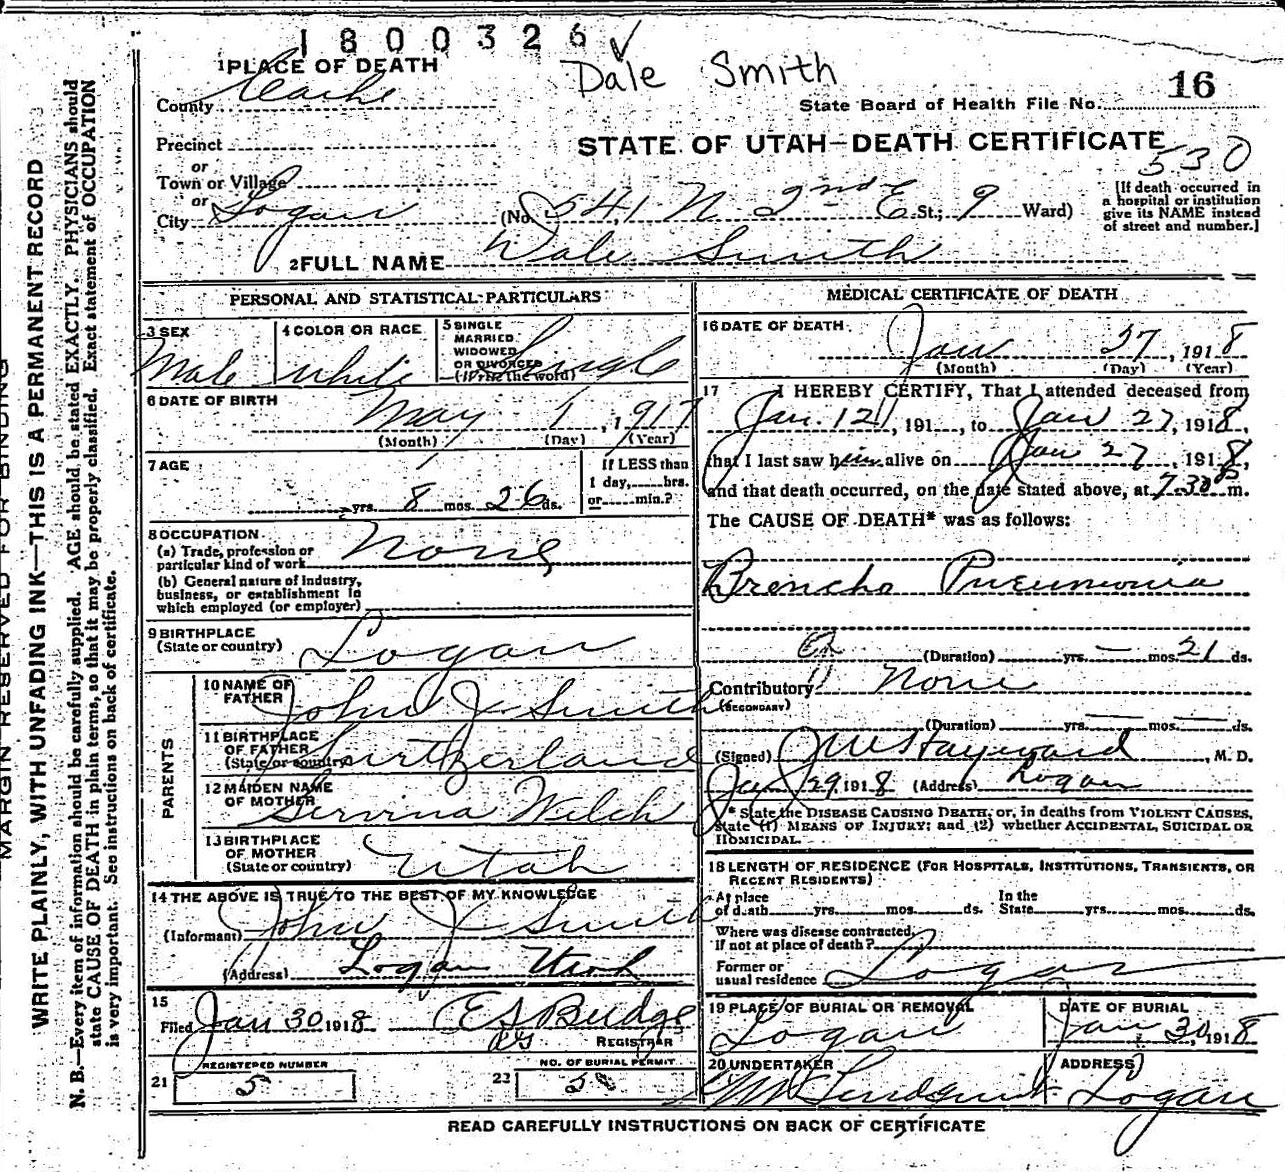 1800326
Dale Smith
16
1 PLACE OF DEATH
County Cache
State Board of Health File No.
Precinct
STATE OF UTAH—DEATH CERTIFICATE
530
or
Town or Village
or
City Logan (No. 541 N 2nd E St.; 9 Ward)
[If death occurred in
a hospital or institution
give its NAME instead
of street and number.]
2 FULL NAME Dale Smith
PERSONAL AND STATISTICAL PARTICULARS
3 SEX
Male
4 COLOR OR RACE
White
5 SINGLE
MARRIED
WIDOWED
OR DIVORCED
(Write the word)
Single
6 DATE OF BIRTH
May 1, 1917
(Month) (Day) (Year)
7 AGE
yrs. 8 mos. 26 ds.
If LESS than
1 day, hrs.
or min.?
8 OCCUPATION
(a) Trade, profession or
particular kind of work None
(b) General nature of Industry,
business, or establishment in
which employed (or employer)
9 BIRTHPLACE
(State or country) Logan
PARENTS
10 NAME OF
FATHER John J Smith
11 BIRTHPLACE
OF FATHER
(State or country)
12 MAIDEN NAME
OF MOTHER Servina Welch
13 BIRTHPLACE
OF MOTHER
(State or country) Utah
14 THE ABOVE IS TRUE TO THE BEST OF MY KNOWLEDGE
(Informant) John J Smith
(Address) Logan Utah
15
Filed Jan 30 1918 E S Budge
REGISTRAR
REGISTERED NUMBER
21 5
NO. OF BURIAL PERMIT
22
MEDICAL CERTIFICATE OF DEATH
16 DATE OF DEATH
Jan 27, 1918
(Month) (Day) (Year)
17 I HEREBY CERTIFY, That I attended deceased from
Jan. 12, 191, to Jan 27, 1918,
that I last saw him alive on Jan 27, 1918,
and that death occurred, on the date stated above, at 7:30 P m.
The CAUSE OF DEATH* was as follows:
Broncho Pneumonia
(Duration) yrs. — mos. 21 ds.
Contributory None
(SECONDARY)
(Duration) yrs. mos. ds.
(Signed) J W Hayward, M. D.
Jan 29 1918 (Address) Logan
* State the DISEASE CAUSING DEATH; or, in deaths from VIOLENT CAUSES,
state (1) MEANS OF INJURY; and (2) whether ACCIDENTAL, SUICIDAL OR
HOMICIDAL.
18 LENGTH OF RESIDENCE (FOR HOSPITALS, INSTITUTIONS, TRANSIENTS, OR
RECENT RESIDENTS)
At place
of death yrs. mos. ds.
In the
State yrs. mos. ds.
Where was disease contracted,
If not at place of death?
Former or
usual residence Logan
19 PLACE OF BURIAL OR REMOVAL
Logan
DATE OF BURIAL
Jan 30, 1918
20 UNDERTAKER
ADDRESS
Logan
READ CAREFULLY INSTRUCTIONS ON BACK OF CERTIFICATE
MARGIN RESERVED FOR BINDING
WRITE PLAINLY, WITH UNFADING INK—THIS IS A PERMANENT RECORD
N. B.—Every item of information should be carefully supplied. AGE should be stated EXACTLY. PHYSICIANS should
state CAUSE OF DEATH in plain terms, so that it may be properly classified. Exact statement of OCCUPATION
is very important. See instructions on back of certificate.